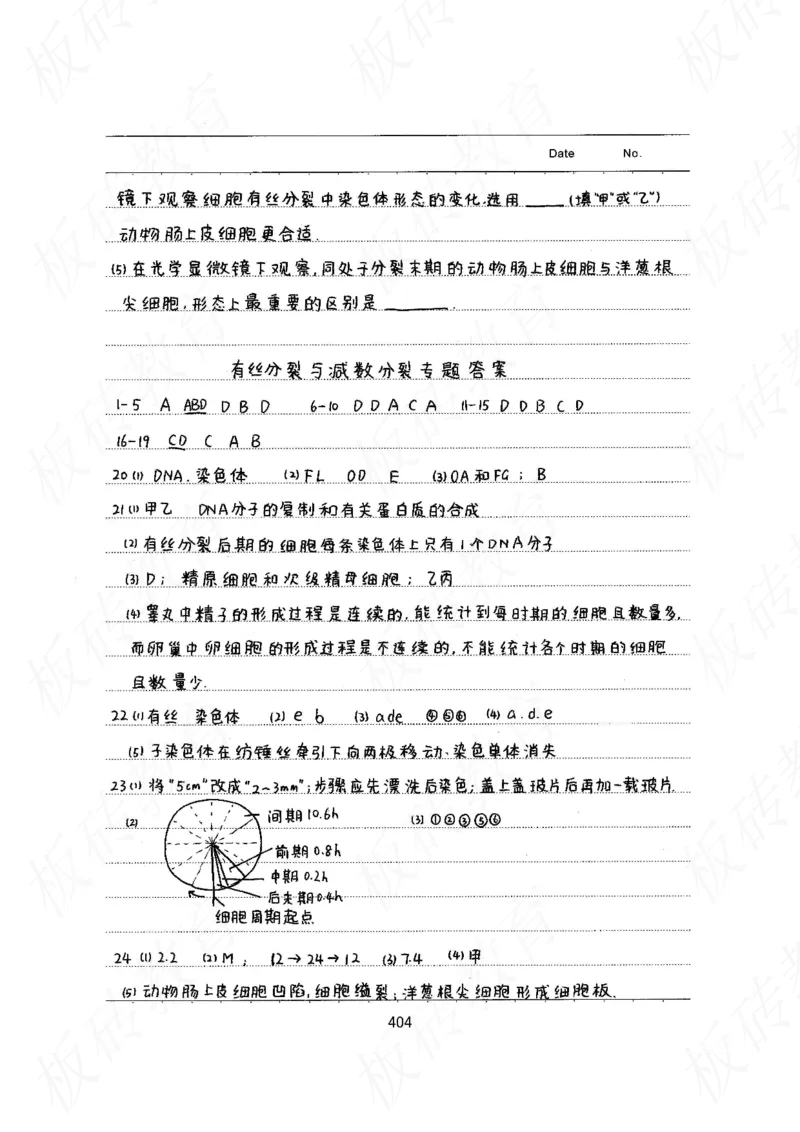 Date No.
镜下观察细胞有丝分裂中染色体形态的变化.选用____(填"甲"或"乙")
动物肠上皮细胞更合适.
(5)在光学显微镜下观察,同处于分裂末期的动物肠上皮细胞与洋葱根
尖细胞,形态上最重要的区别是______.
有丝分裂与减数分裂专题答案
1-5 A ABD D B D 6-10 D D A C A 11-15 D D B C D
16-19 CD C A B
20(1) DNA.染色体 (2)FL OD E (3)OA和FG; B
21(1)甲乙 DNA分子的复制和有关蛋白质的合成
(2)有丝分裂后期的细胞每条染色体上只有1个DNA分子
(3)D; 精原细胞和次级精母细胞; 乙丙
(4)睾丸中精子的形成过程是连续的,能统计到每时期的细胞且数量多,
而卵巢中卵细胞的形成过程是不连续的,不能统计各个时期的细胞
且数量少.
22(1)有丝 染色体 (2) e b (3) ade ④⑤⑥ (4) a.d.e
(5)子染色体在纺锤丝牵引下向两极移动、染色单体消失
23(1)将"5cm"改成"2~3mm";步骤应先漂洗后染色;盖上盖玻片后再加一载玻片.
(2) 间期10.6h (3) ①②③⑤⑥
前期0.8h
中期0.2h
后末期0.4h
细胞周期起点
24 (1) 2.2 (2) M; 12→24→12 (3) 7.4 (4)甲
(5)动物肠上皮细胞凹陷,细胞缢裂;洋葱根尖细胞形成细胞板.
404
板砖教育